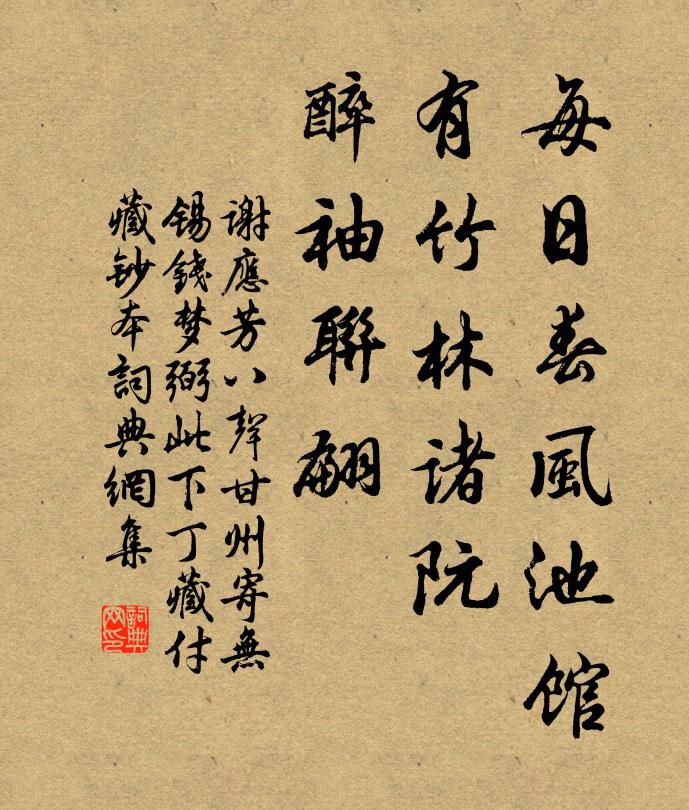 每日春風池館
有竹林諸阮
醉袖聯翩
謝應芳八聲甘州寄無
錫錢梦弼此下丁藏付
藏鈔本詞典網集
詞典
网印